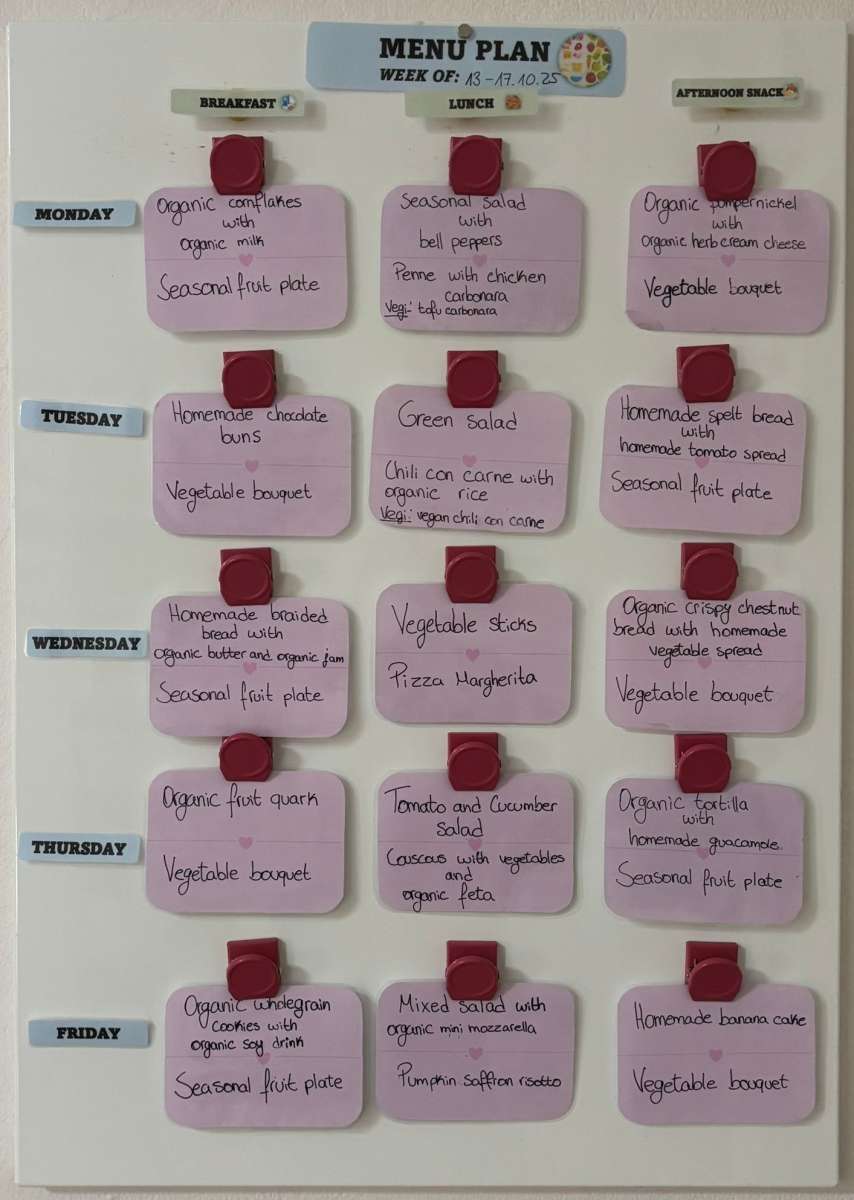 MENU PLAN
WEEK OF: 13-17.10.25
BREAKFAST
LUNCH
AFTERNOON SNACK
MONDAY
Organic cornflakes
with
organic milk
Seasonal fruit plate
Seasonal salad
with
bell peppers
Penne with chicken
carbonara
Vegi: tofu carbonara
Organic pumpernickel
with
Organic herb cream cheese
Vegetable bouquet
TUESDAY
Homemade chocolate
buns
Vegetable bouquet
Green salad
Chili con carne with
organic rice
Vegi: vegan chili con carne
Homemade spelt bread
with
homemade tomato spread
Seasonal fruit plate
WEDNESDAY
Homemade braided
bread with
organic butter and organic jam
Seasonal fruit plate
Vegetable sticks
Pizza Margherita
Organic crispy chestnut
bread with homemade
vegetable spread
Vegetable bouquet
THURSDAY
Organic fruit quark
Vegetable bouquet
Tomato and Cucumber
salad
Couscous with vegetables
and
organic feta
Organic tortilla
with
homemade guacamole
Seasonal fruit plate
FRIDAY
Organic wholegrain
cookies with
organic soy drink
Seasonal fruit plate
Mixed salad with
organic mini mozzarella
Pumpkin saffron risotto
Homemade banana cake
Vegetable bouquet